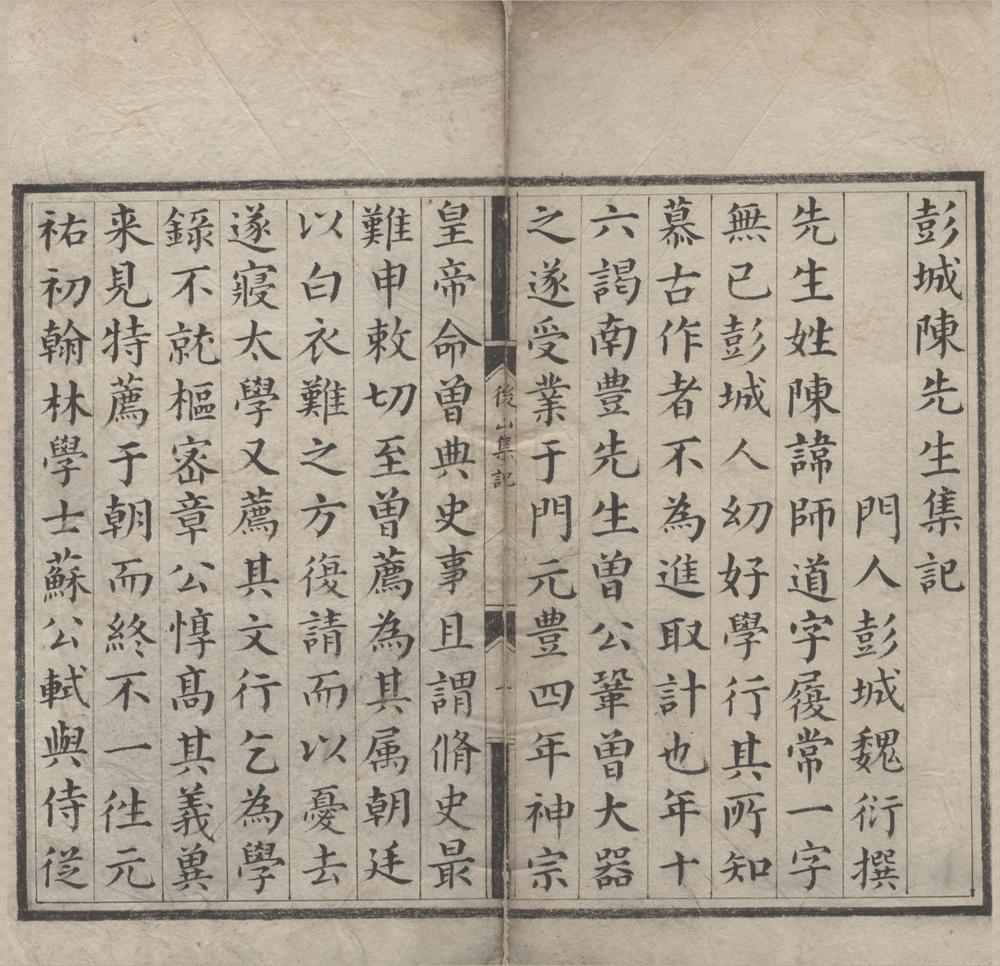 彭城陳先生集記
門人彭城魏衍撰
先生姓陳諱師道字履常一字
無已彭城人幼好學行其所知
慕古作者不為進取計也年十
六謁南豊先生曽公鞏曽大器
之遂受業于門元豊四年神宗
後山集記
一
皇帝命曽典史事且謂脩史最
難申敕切至曽薦為其属朝廷
以白衣難之方復請而以憂去
遂寢太學又薦其文行乞為學
錄不就樞宻章公惇髙其義兾
来見特薦于朝而終不一徃元
祐初翰林學士蘇公軾與侍從